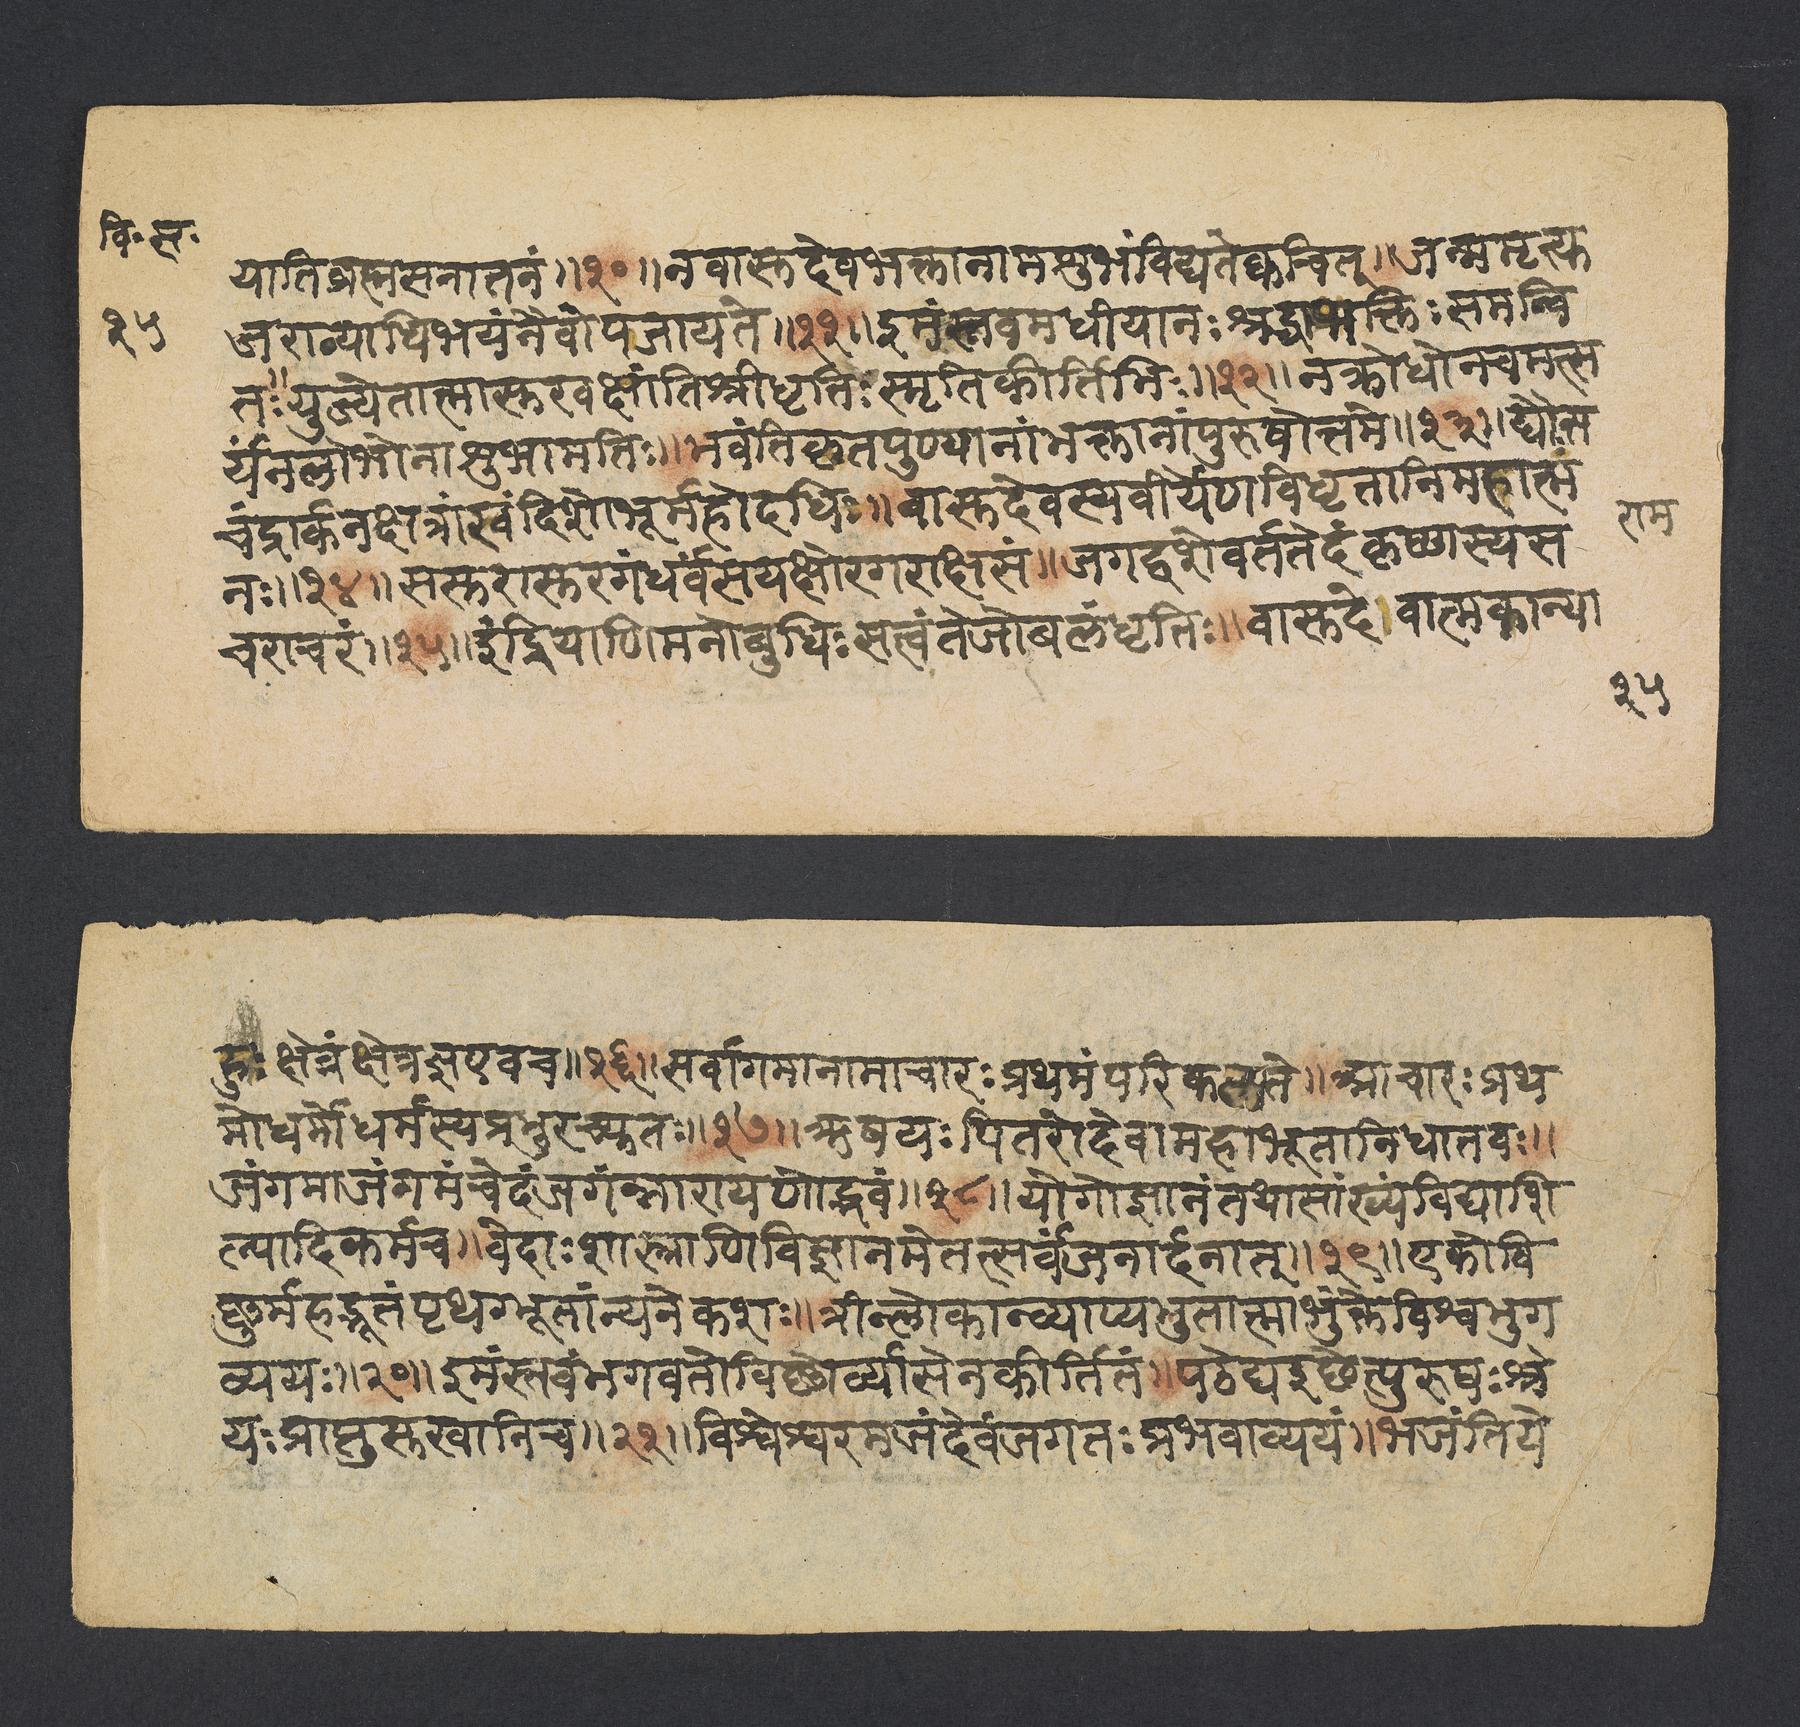 वि॰ स॰
१५
यातिब्रह्मसनातनं॥१०॥नवासुदेवभक्तानामशुभंविद्यतेक्वचित्॥जन्ममृत्यु
जराव्याधिभयंनैवोपजायते॥११॥इमंस्तवमधीयानःश्रद्धाभक्तिःसमन्वि
तः॥युज्येतात्मासुखक्षांतिश्रीधृतिःस्मृतिकीर्तिभिः॥१२॥नक्रोधोनचमत्स
र्यंनलोभोनाशुभामतिः॥भवंतिकृतपुण्यानांभक्तानांपुरुषोत्तमे॥१३॥द्यौःस
चंद्रार्कनक्षत्रांखंदिशोभूर्महोदधिः॥वासुदेवस्यवीर्येणविधृतानिमहात्म
नः॥१४॥ससुरासुरगंधर्वंसयक्षोरगराक्षसं॥जगद्वशेवर्ततेदंकृष्णस्यस
चराचरं॥१५॥इंद्रियाणिमनोबुधिःसत्वंतेजोबलंधृतिः॥वासुदेवात्मकान्या
राम
१५
हुःक्षेत्रंक्षेत्रज्ञएवच॥१६॥सर्वागमानामाचारःप्रथमंपरिकल्पते॥आचारःप्रथ
मोधर्मोधर्मस्यप्रभुरच्युतः॥१७॥ऋषयःपितरोदेवामहाभूतानिधातवः॥
जंगमाजंगमंचेदंजगंन्नारायणोद्भवं॥१८॥योगोज्ञानंतथासांख्यंविद्याशि
ल्पादिकर्मच॥वेदाःशास्त्राणिविज्ञानमेतत्सर्वंजनार्दनात्॥१९॥एकोवि
ष्णुर्महद्भूतंपृथग्भूतांन्यनेकशः॥त्रील्लोकान्व्याप्यभुतात्माभुंक्तेविश्वभुग
व्ययः॥२०॥इमंस्तवंभगवतोविष्णोर्व्यासेनकीर्तितं॥पठेद्यइछेत्पुरुषःश्रे
यःप्राप्तुसुखानिच॥२१॥विश्वेश्वरमजंदेवंजगतःप्रभवाव्ययं॥भजंतिये